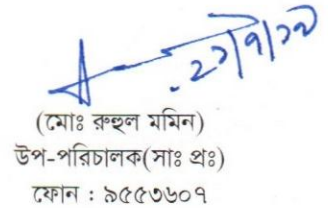 ২১/৭/১৯
(মোঃ রুহুল মমিন)
উপ-পরিচালক(সাঃ প্রঃ)
ফোন : ৯৫৫৩৬০৭